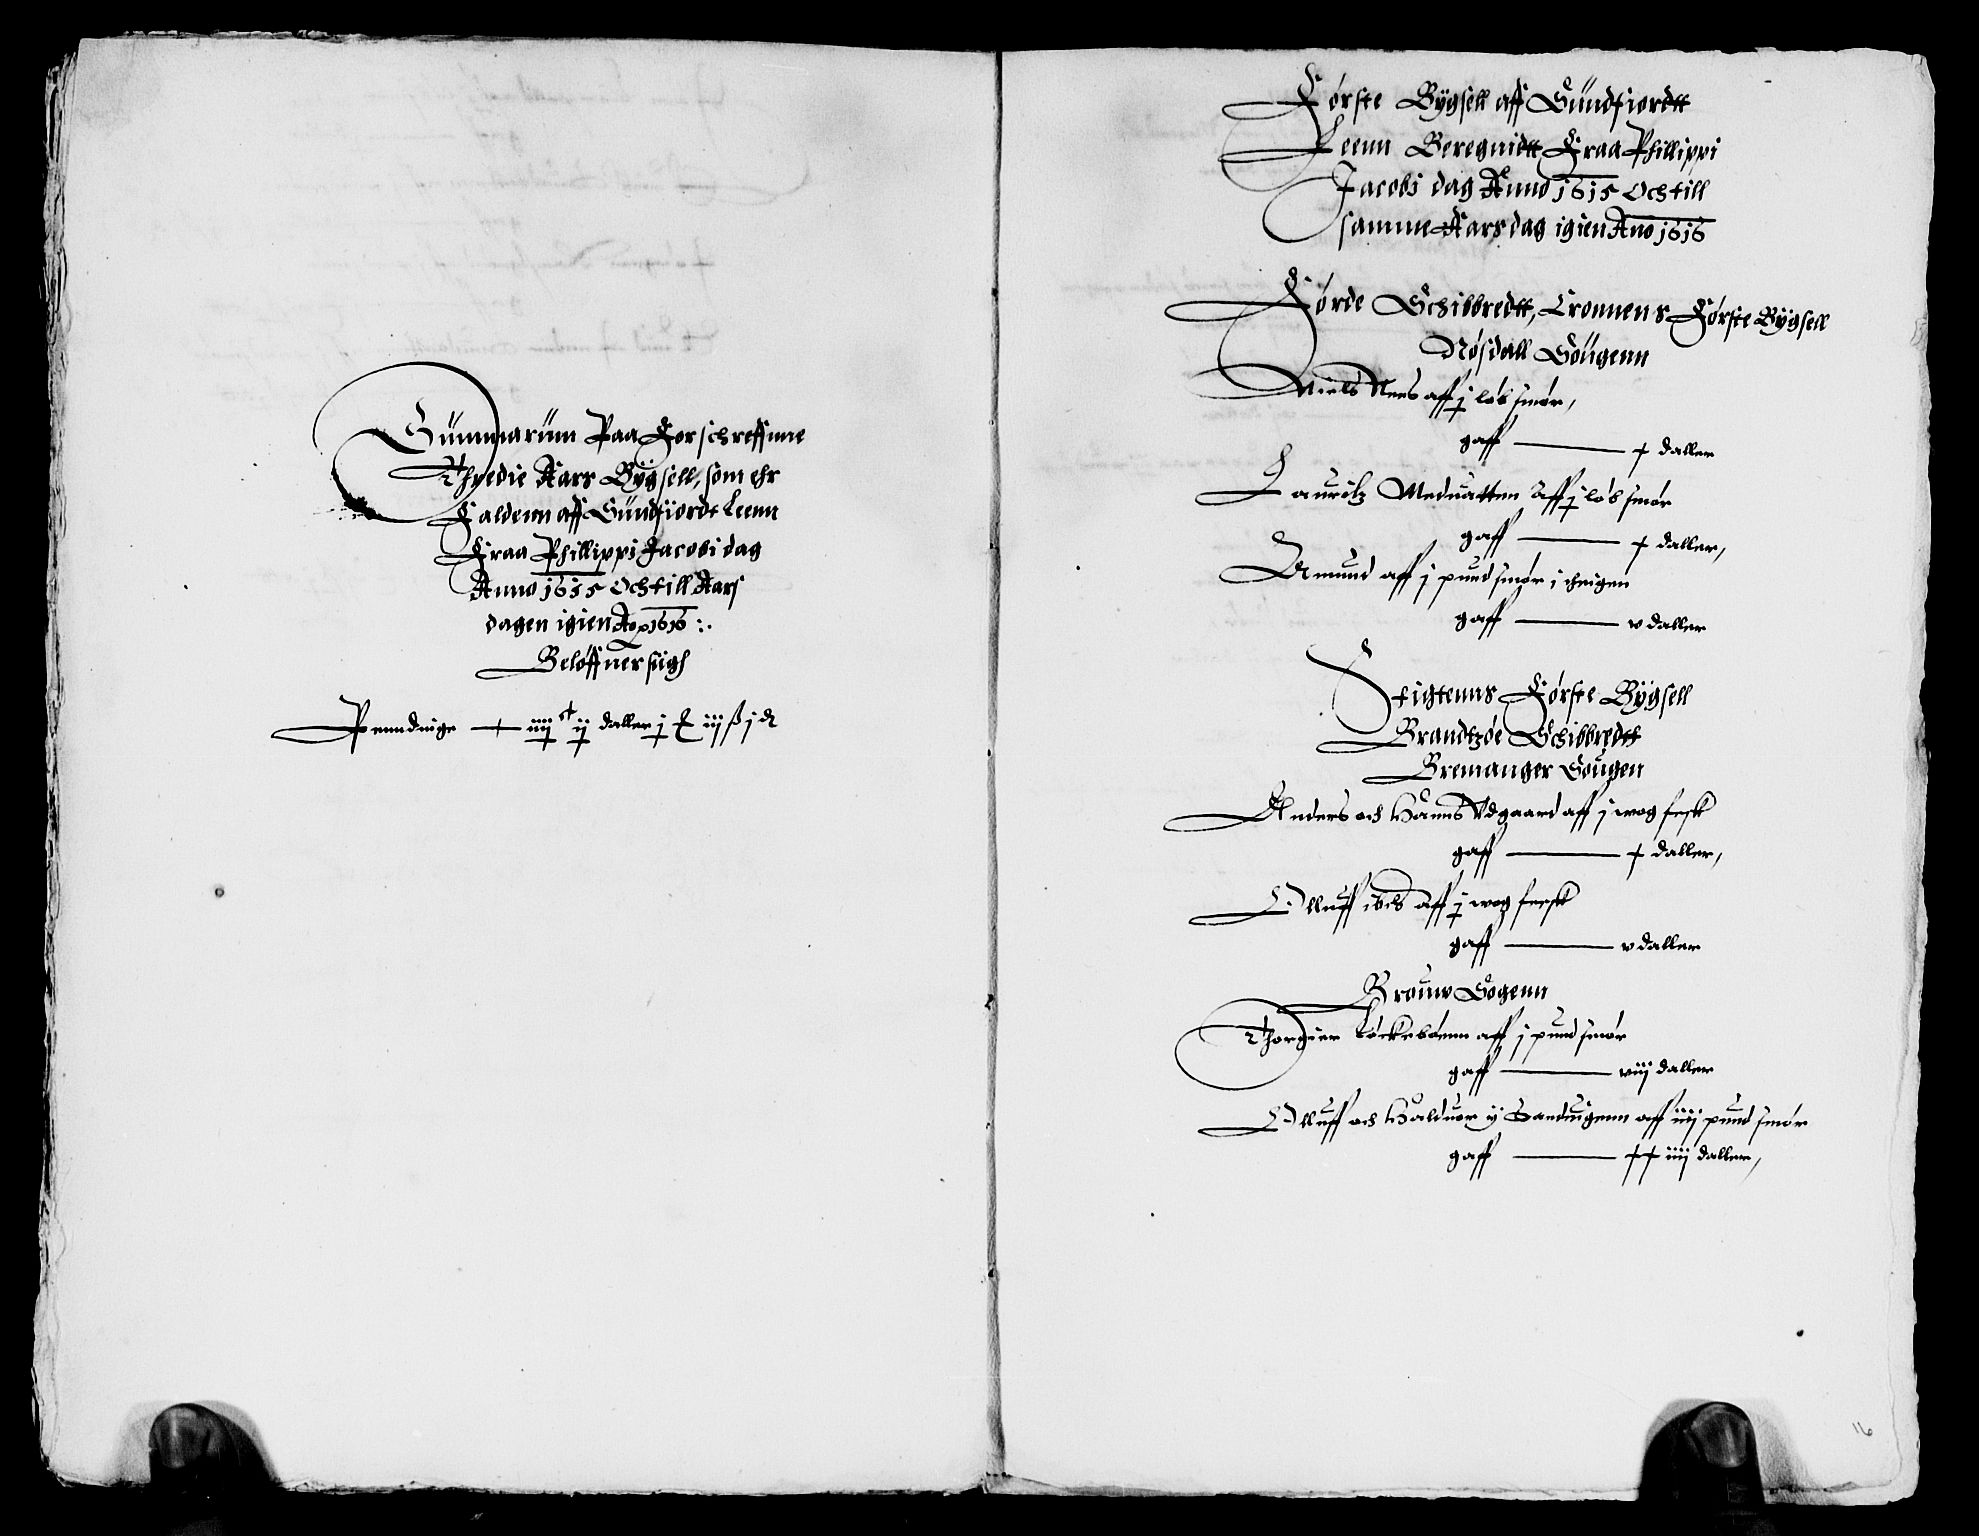 Summarüm Paa Forschreffnne
Thredie Aars Bÿgsell, som ehr
Faldenn aff Sündfiordt Leenn
Fraa Phillippi Jacobi dag
Anno 1615 Och till Aars
dagen igien Ao 1616 :.
Beløffner sigh
Penndinge — iiij ij daller j ß iij ß j
Første Bÿgsell aff Sündfiordtt
Leenn Beregnidtt Fraa Phillippi
Jacobi dag Anno 1615 Och till
samme Aars dag igien Ano 1616
Førde Schibbredtt, Cronnens Første Bÿgsell
Nøsdall Sougenn
Niels Nees aff j løb smør,
gaff — x daller
Lauritz Meduatten aff j løb smør
gaff — x daller,
Amund aff j pund smør i
gaff — v daller
Stigtenns Første Bÿgsell
Brandtzøe Schibbredtt
Bremanger Sougen
Anders och Hanns Udgaard aff j wog fesk
gaff — x daller,
Olluff ibids aff j wog feesk
gaff — v daller
Brouw Sogenn
Thorgier Løckebønn aff j pund smør
gaff — viij daller
Olluff och Halduor ij Sanduigenn aff iiij pund smør
gaff — xx iiij daller,
16